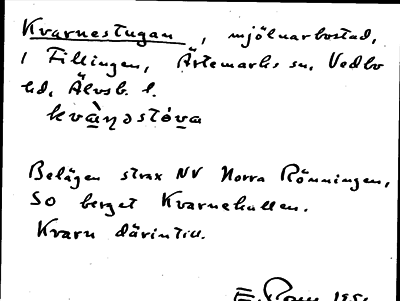 Kvarnestugan, mjölnarbostad,
i Fillingen, Ärtemarks sn, Vedbo
hd, Älvsb. l.
kvànəstóva
Belägen strax NV Norra Rönningen,
SO berget Kvarnekullen.
Kvarn därintill.